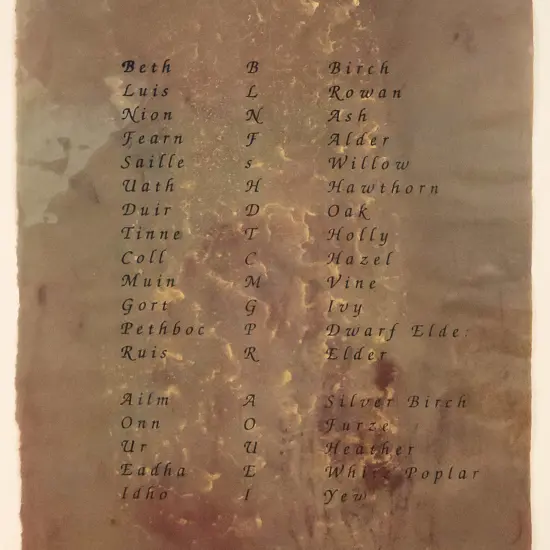 Beth B Birch
Luis L Rowan
Nion N Ash
Fearn F Alder
Saille s Willow
Uath H Hawthorn
Duir D Oak
Tinne T Holly
Coll C Hazel
Muin M Vine
Gort G Ivy
Pethboc P Dwarf Elder
Ruis R Elder
Ailm A Silver Birch
Onn O Furze
Ur U Heather
Eadha E White Poplar
Idho I Yew